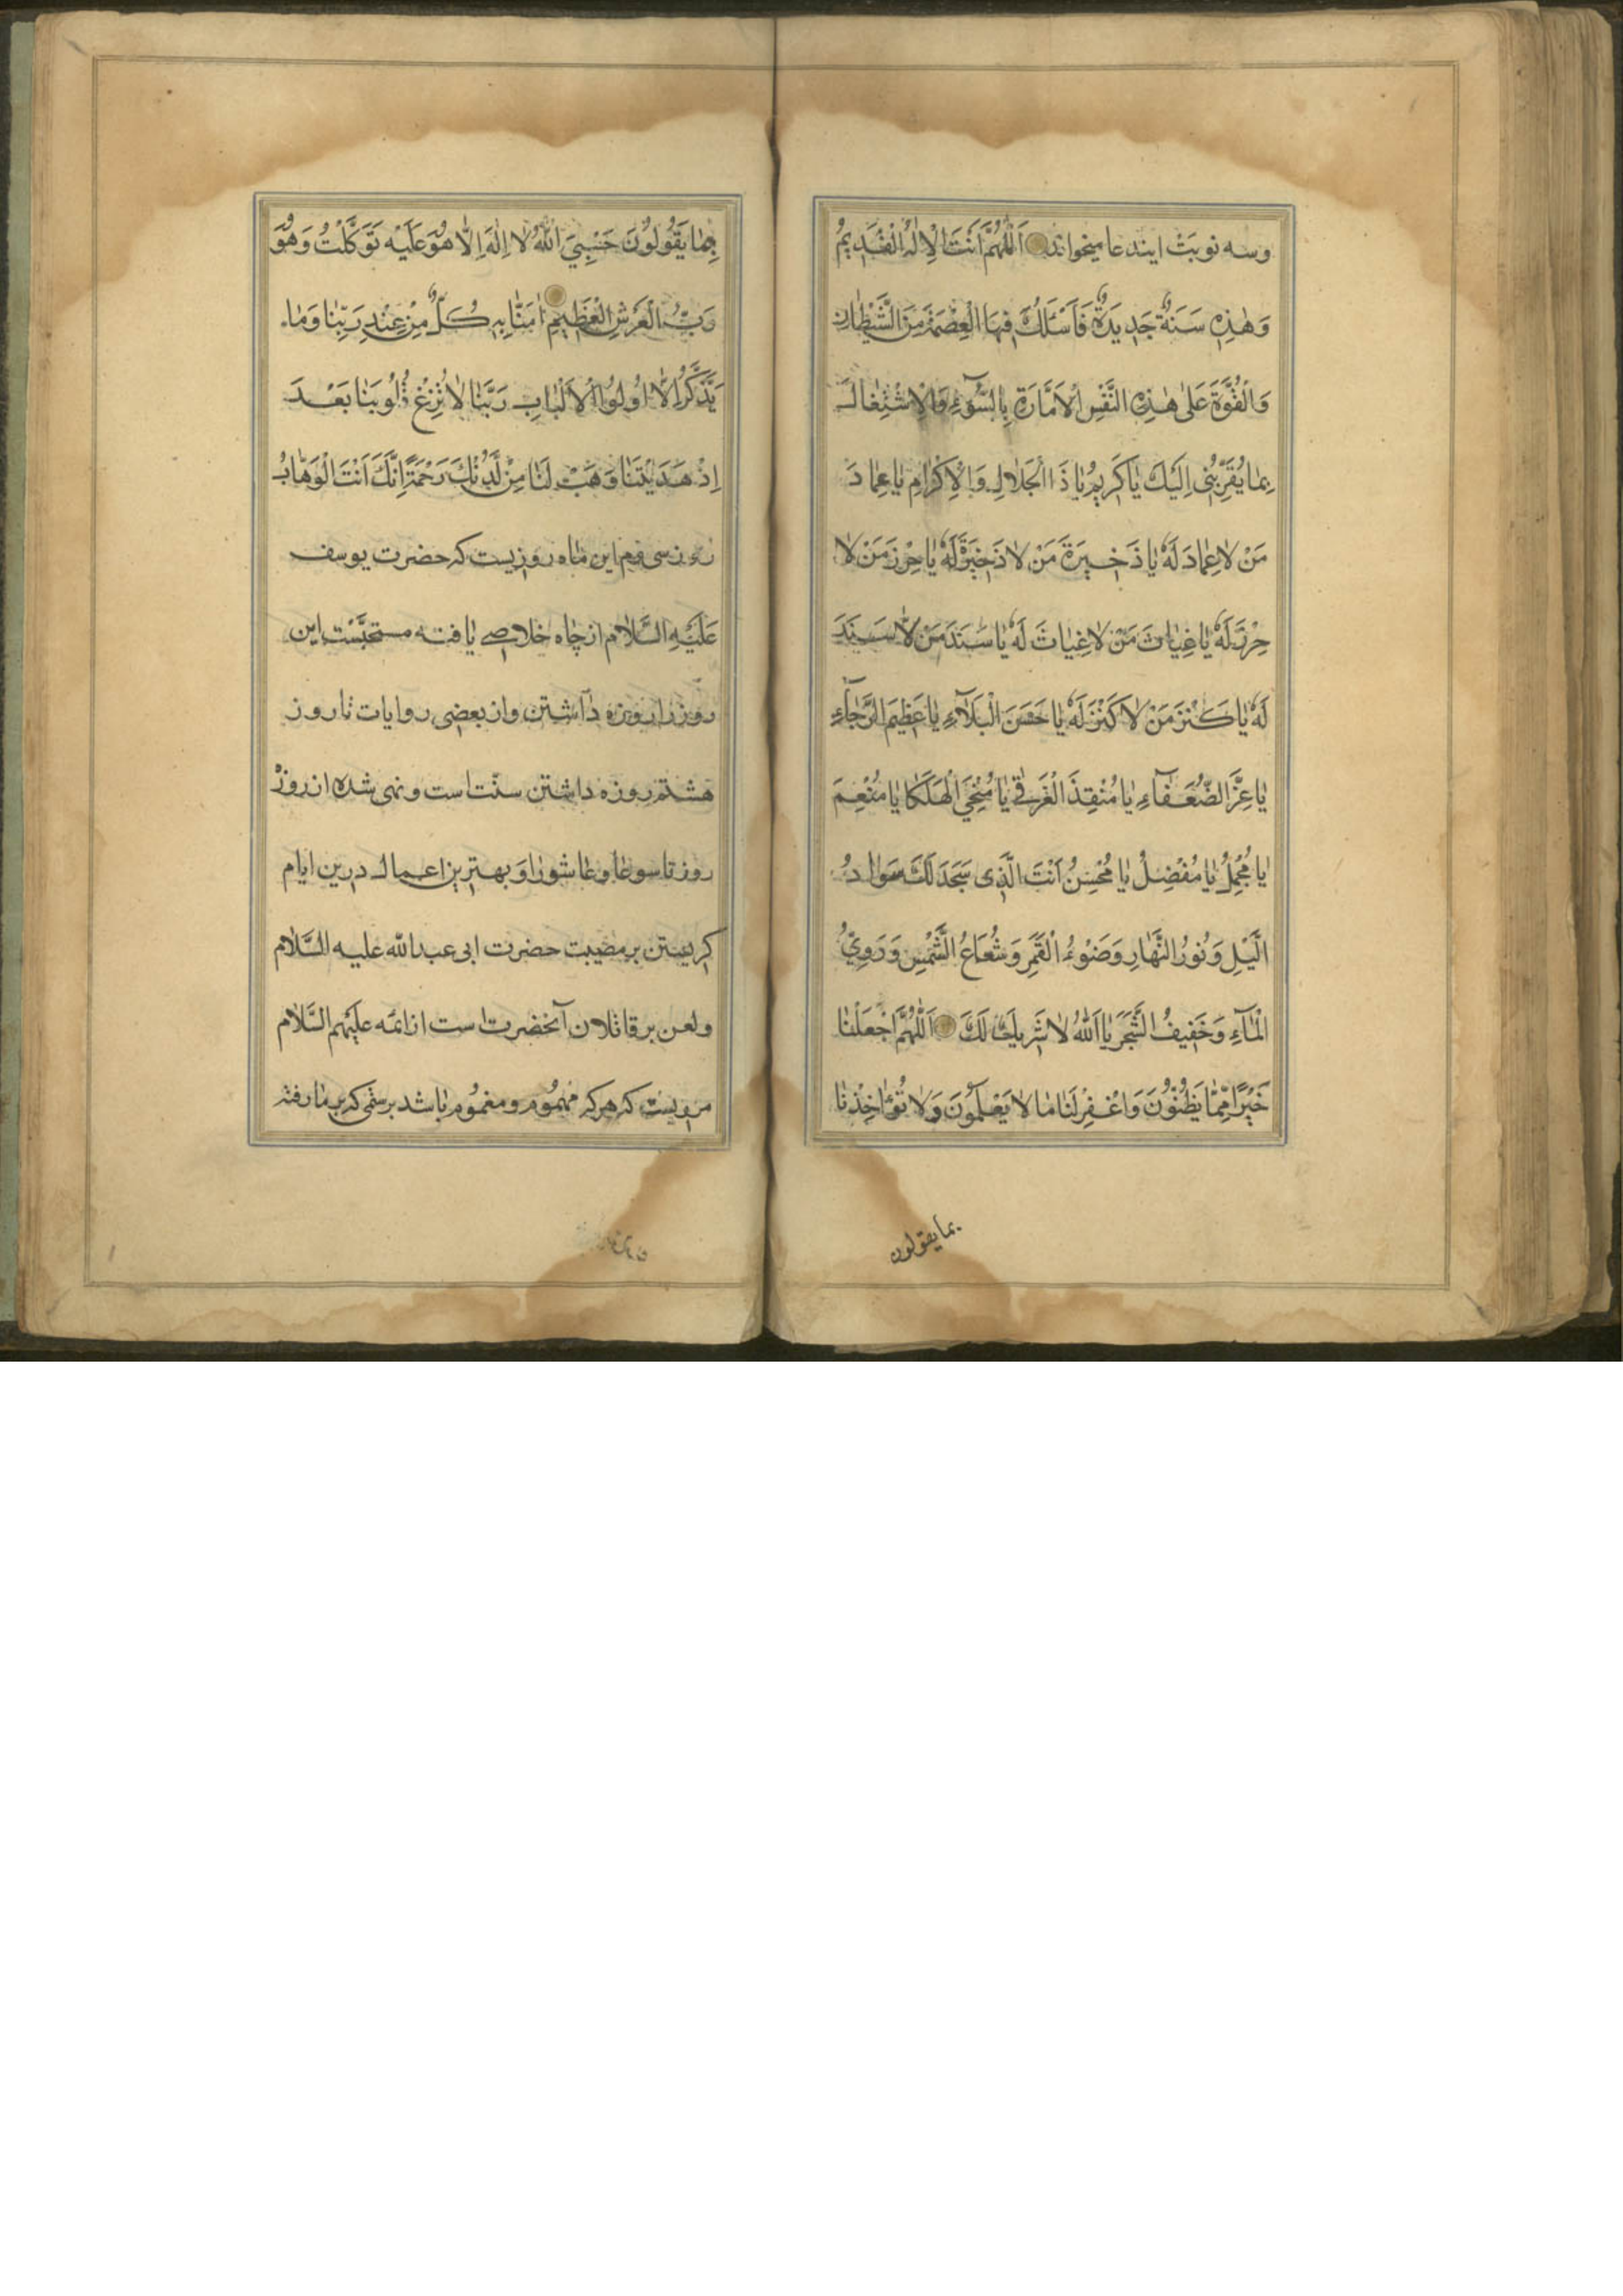 وسه نوبت ایندعا میخواند اَللّٰهُمَّ اَنْتَ الْاِلٰهُ الْقَدِیمُ
وَهٰذِهِ سَنَةٌ جَدِیدَةٌ فَاَسْئَلُكَ فِیهَا الْعِصْمَةَ مِنَ الشَّیْطَانِ
وَالْقُوَّةَ عَلٰی هٰذِهِ النَّفْسِ الْاَمَّارَةِ بِالسُّوٓءِ وَالْاِشْتِغَالَ
بِمَا یُقَرِّبُنِی اِلَیْكَ یَا كَرِیمُ یَا ذَا الْجَلَالِ وَالْاِكْرَامِ یَا عِمَادَ
مَنْ لَا عِمَادَ لَهُ یَا ذَخِیرَةَ مَنْ لَا ذَخِیرَةَ لَهُ یَا حِرْزَ مَنْ لَا
حِرْزَ لَهُ یَا غِیَاثَ مَنْ لَا غِیَاثَ لَهُ یَا سَنَدَ مَنْ لَا سَنَدَ
لَهُ یَا كَنْزَ مَنْ لَا كَنْزَ لَهُ یَا حَسَنَ الْبَلَآءِ یَا عَظِیمَ الرَّجَآءِ
یَا عِزَّ الضُّعَفَآءِ یَا مُنْقِذَ الْغَرْقٰی یَا مُنْجِیَ الْهَلْكَا یَا مُنْعِمَ
یَا مُجْمِلُ یَا مُفْضِلُ یَا مُحْسِنُ اَنْتَ الَّذِی سَجَدَ لَكَ سَوَادُ
الَّیْلِ وَنُورُ النَّهَارِ وَضَوْءُ الْقَمَرِ وَشُعَاعُ الشَّمْسِ وَدَوِیُّ
الْمَآءِ وَحَفِیفُ الشَّجَرِ یَا اَللّٰهُ لَا شَرِیكَ لَكَ اَللّٰهُمَّ اجْعَلْنَا
خَیْرًا مِمَّا یَظُنُّونَ وَاغْفِرْ لَنَا مَا لَا یَعْلَمُونَ وَلَا تُؤَاخِذْنَا
بما یقولون
بِمَا یَقُولُونَ حَسْبِیَ اللّٰهُ لَا اِلٰهَ اِلَّا هُوَ عَلَیْهِ تَوَكَّلْتُ وَهُوَ
رَبُّ الْعَرْشِ الْعَظِیمِ اٰمَنَّا بِهِ كُلٌّ مِنْ عِنْدِ رَبِّنَا وَمَا
یَذَّكَّرُ اِلَّا اُولُوا الْاَلْبَابِ رَبَّنَا لَا تُزِغْ قُلُوبَنَا بَعْدَ
اِذْ هَدَیْتَنَا وَهَبْ لَنَا مِنْ لَدُنْكَ رَحْمَةً اِنَّكَ اَنْتَ الْوَهَّابُ
روز سیوم این ماه روزیست که حضرت یوسف
عَلَیْهِ السَّلَام از چاه خلاصی یافته مستحبّست این
روز را روزه دآشتن واز بعضی روایات تا روز
هشتم روزه داشتن سنّت است ونهی شده از روزۀ
روز تاسوعا وعاشورا وَ بهترین اعمال درین ایام
کریستن بر مصیبت حضرت ابی عبدالله علیه السَّلَام
ولعن بر قاتلان آنحضرت است از ائمه علیهم السَّلَام
مرویست که هرکه مهموُم ومغموُم باشد برستمی که بر ما رفته